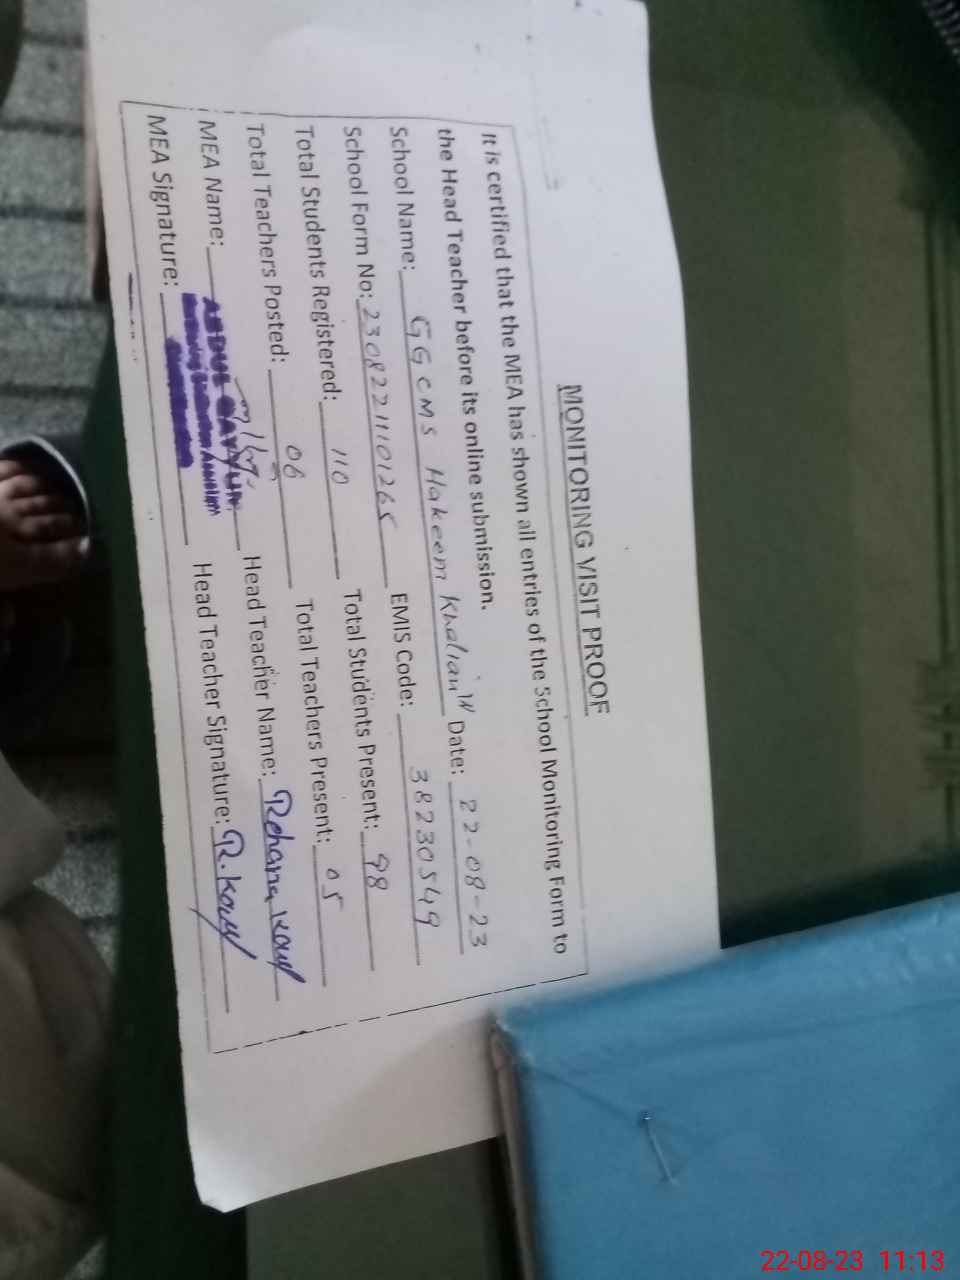 MONITORING VISIT PROOF
It is certified that the MEA has shown all entries of the School Monitoring Form to
the Head Teacher before its online submission.
School Name: GGCMS Hakeem Khalian W Date: 22-08-23
School Form No: 23082211101265 EMIS Code: 38230549
Total Students Registered: 110 Total Students Present: 98
Total Teachers Posted: 06 Total Teachers Present: 05
MEA Name: ABDUL QAYYUM Head Teacher Name: Rehana Kousar
MEA Signature: Head Teacher Signature: R. Kousar
22-08-23 11:13